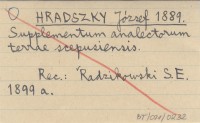 HRADSZKY József 1889.
Supplementum analectorum
terrae scepusiensis.
Rec.: Radzikowski S.E.
1899 a.
BT/OM/0232